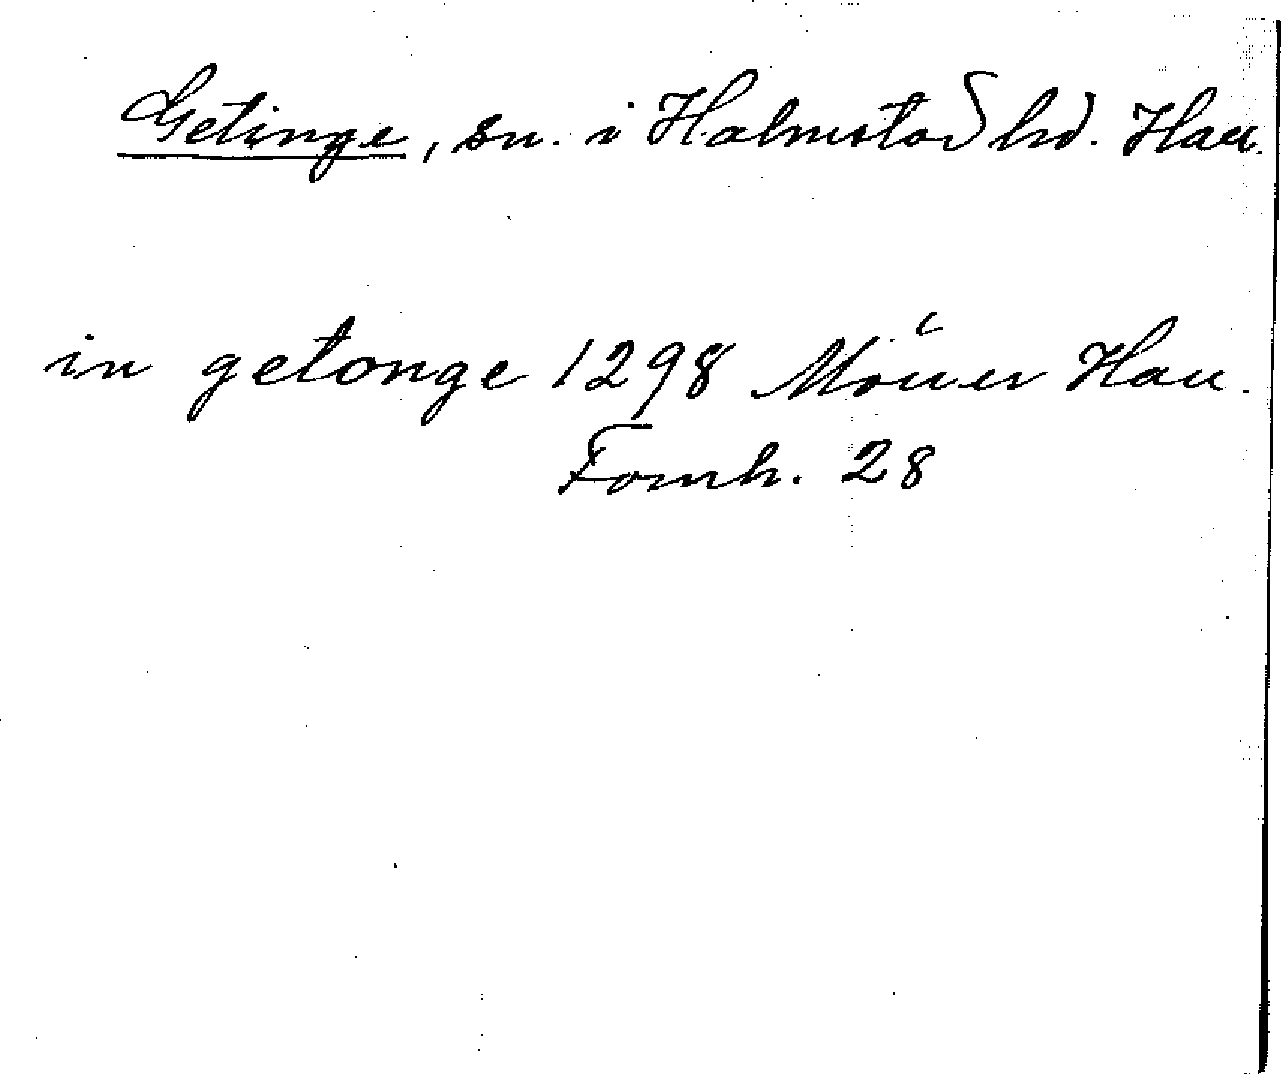 Getinge, sn. i Halmstad hd. Hall.
in getonge 1298 Möller Hall.
Fornh. 28